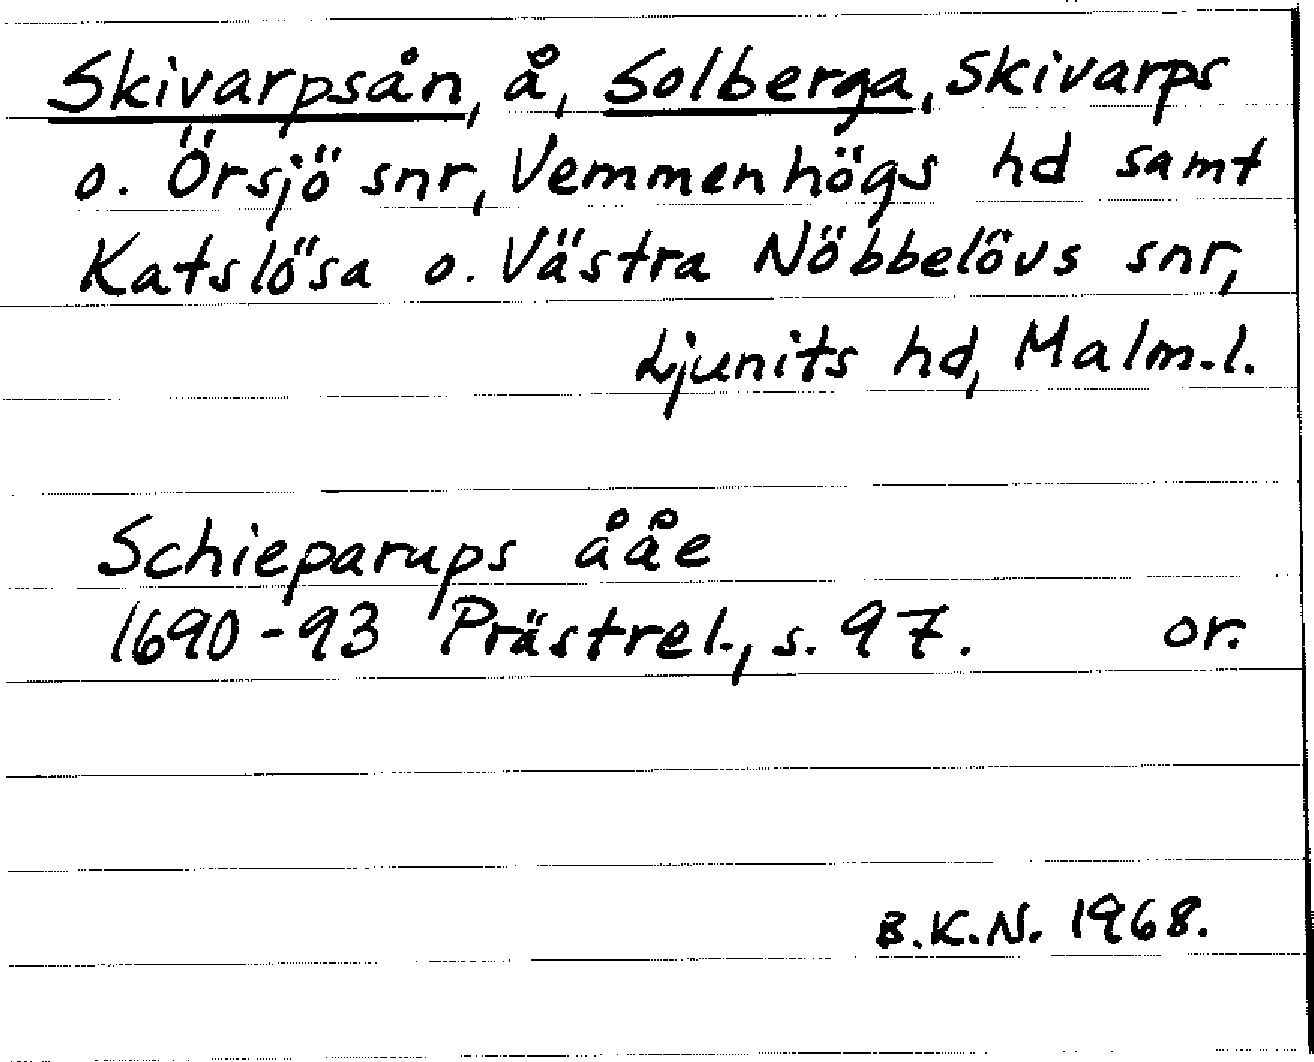 Skivarpsån, å, Solberga, Skivarps
o. Örsjö snr, Vemmenhögs hd samt
Katslösa o. Västra Nöbbelövs snr,
Ljunits hd, Malm.l.
Schieparups ååe
1690-93 Prästrel., s. 97. or.
B.K.N. 1968.